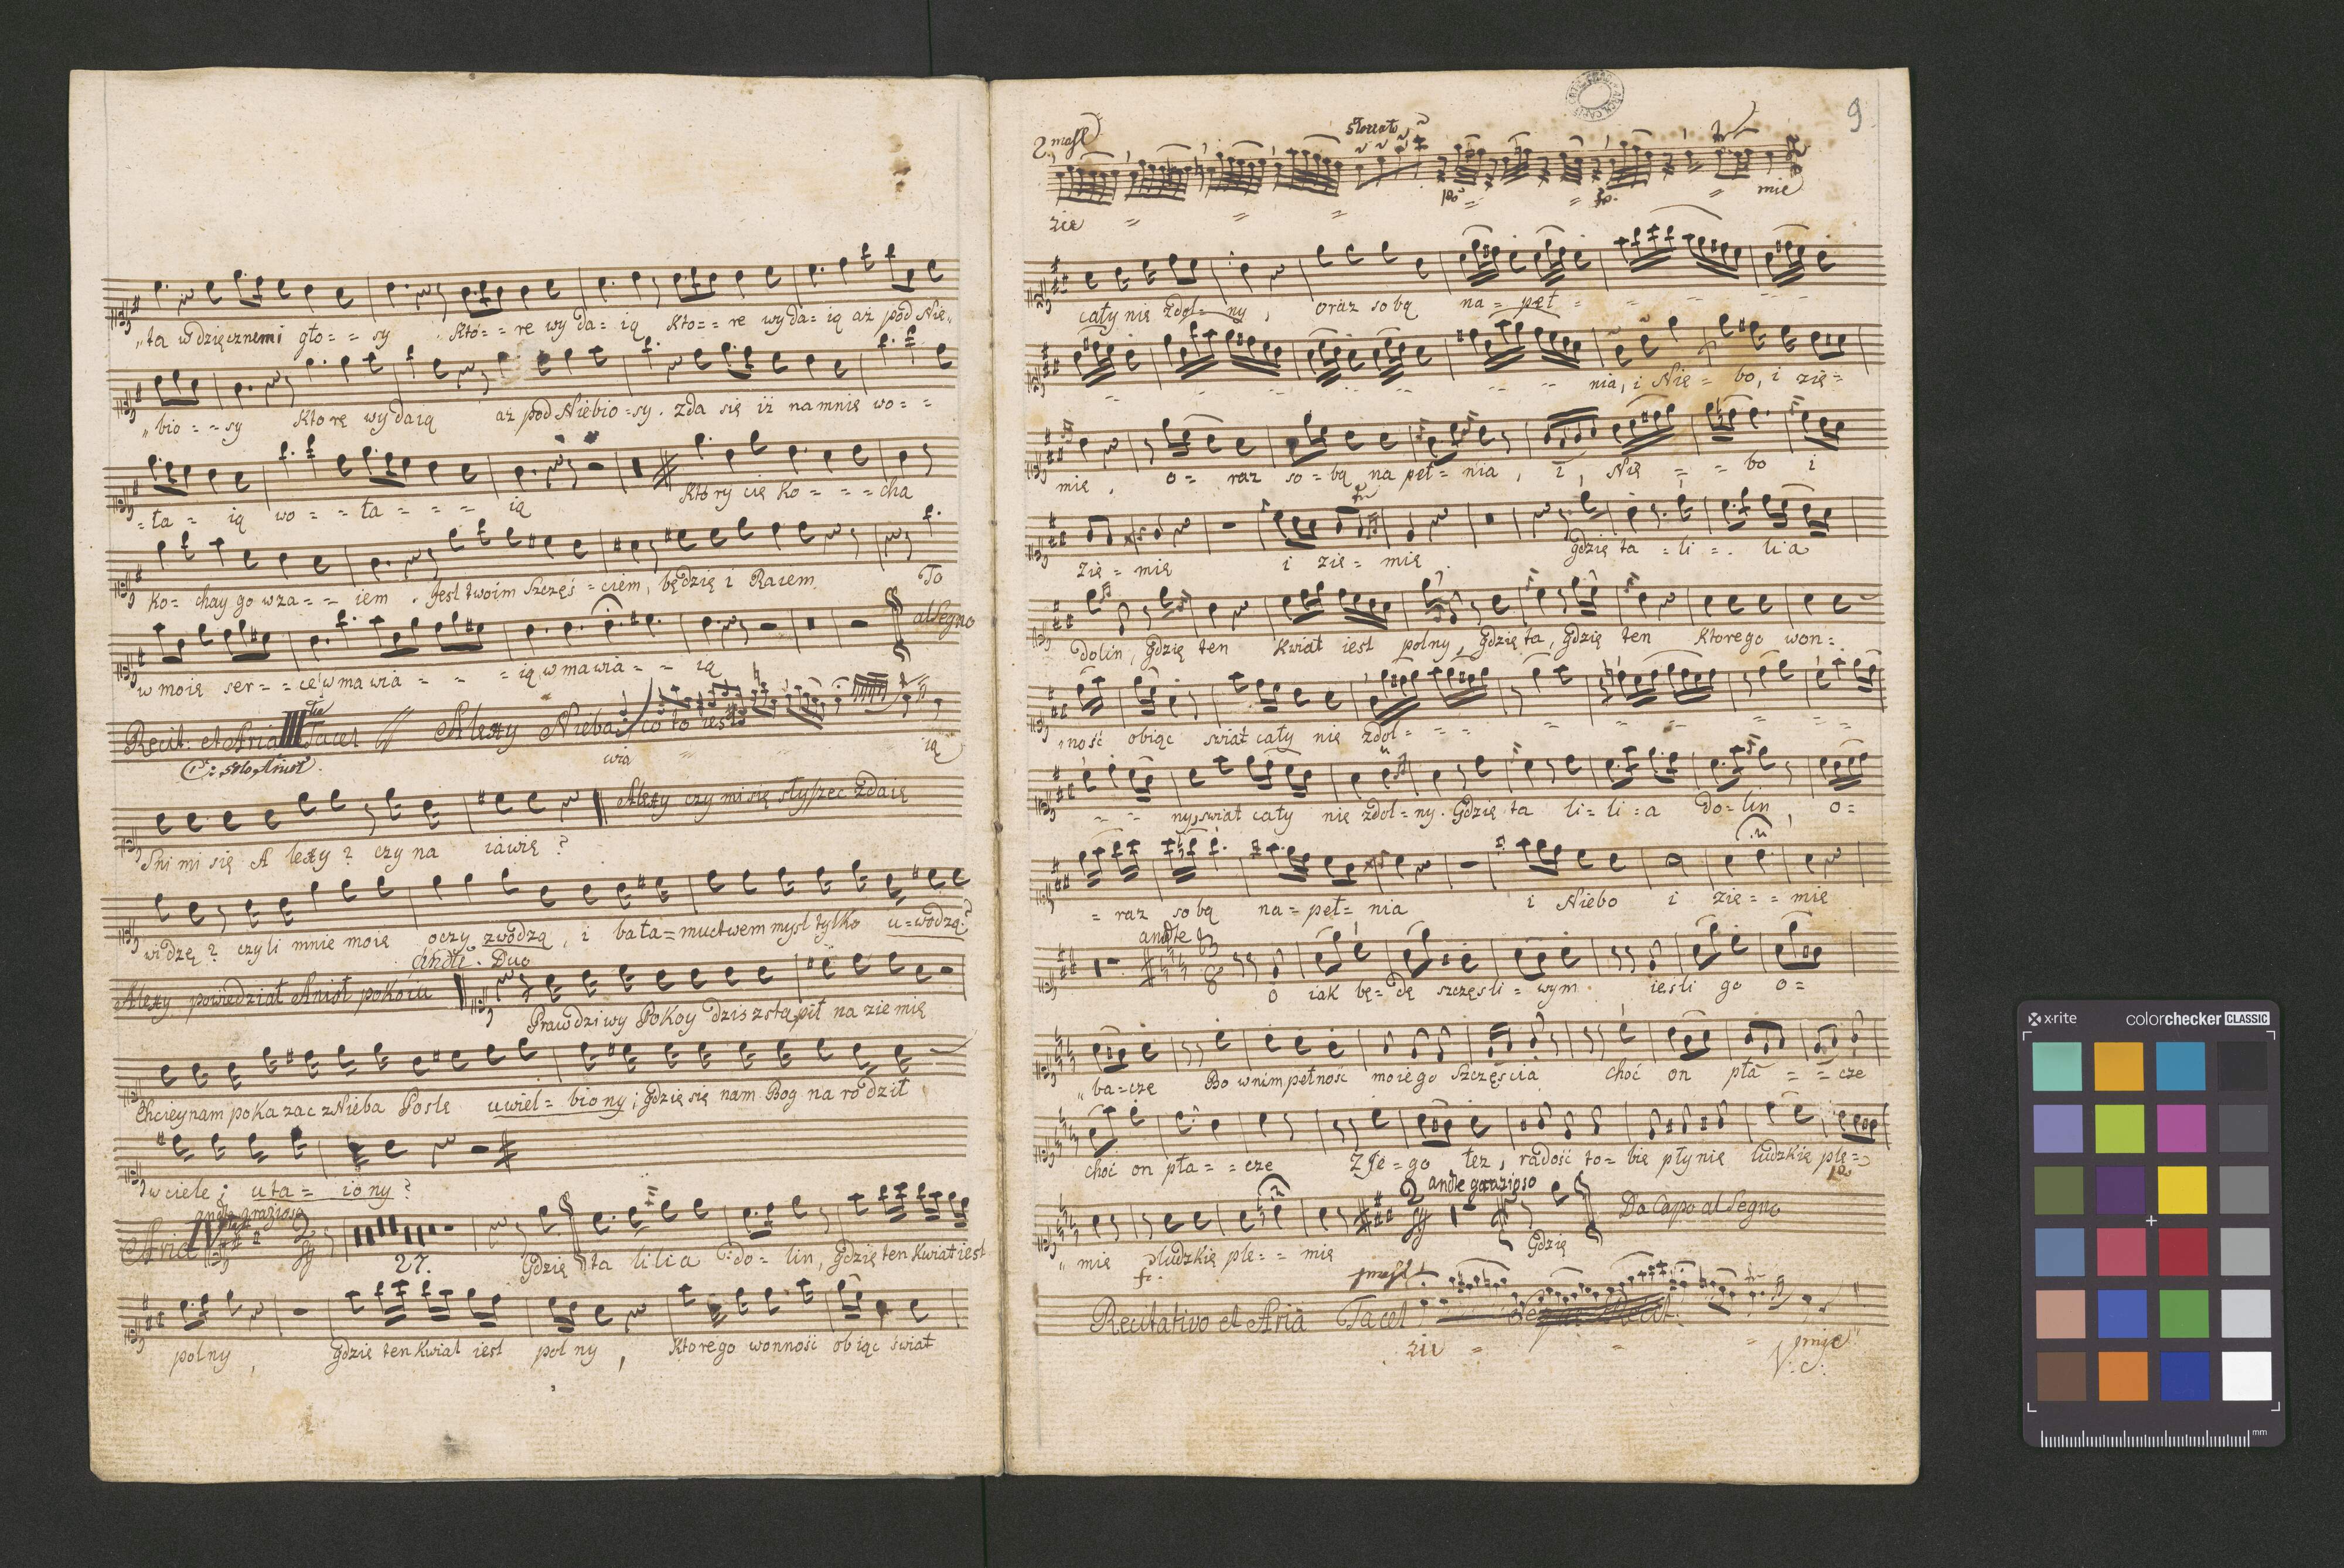 „ta wdzięcznemi gło= = sy . Kto= = re wy da= ią Kto= = re wy da= ią aż pod Nie„
„bio= = sy Ktore wydaią aż pod Niebio=sy. zda się iż namnie wo= =
=ła= ią wo= = ła= = = = ią Ktory cię Ko= = = cha
Ko= chay go wza= = iem . Jest twoim Szczęś=ciem, będzie i Raiem To
w moie ser= =ce wmawia= = = =ią wmawia= = ią al Segno
Recit: et Aria III Tacet // Alexy Nieba: co to iest:
wia = = ią
Sni mi się A lexy? czy na iawie? Alexy czy mi się słyszec zdaię
widzę? czyli mnie moie oczy zwodzą, i bała=muctwem mysl tylko u=wodzą?
Duo
Alexy powiedział Anioł pokoiu Prawdziwy Pokoy dzis zstąpił na ziemię
Chciey nam pokazac z Nieba Posle uwiel=biony; gdzie się nam Bog narodził
wciele; uta= iony?
andte grazioso
Aria IV 27. Gdzie ta lilia do= lin, gdzie ten Kwiat iest
polny, gdzie ten Kwiat iest polny, Ktorego wonność obiąc świat
9
Sforzato
zie = = = po = = fo. = mie
cały nie zdol= ny, oraz sobą na= peł= = = = =
= = = = = = nia, i Nie= bo, i zie=
mie, o= raz so=bą na peł= nia, i, Nie = = bo i
zie= mie i zie= mie . gdzie ta =li= . lia
dolin, gdzie ten Kwiat iest polny, gdzie ta, gdzie ten Ktorego won=
„ność obiąc swiat cały nie zdol= = = = = = = =
= = ny, swiat cały nie zdol=ny. Gdzie ta li=li=a do=lin, o=
=raz sobą na=peł=nia i Niebo i zie= = mie
andte
o iak bę=dę szczęsli=wym . iesli go o=
„ba=czę Bo w nim pełność moiego Szczęścia choć on pła = = cze
choć on pła= = cze Z Je=go łez, radość to=bie płynie ludzkie ple=
po
2 andte grazioso
„mie ludzkie ple= = mie Gdzie Da Capo al Segno
fo.
Recitativo et Aria Tacet
ziu = = = mie
V: c:
x-rite colorchecker CLASSIC
mm